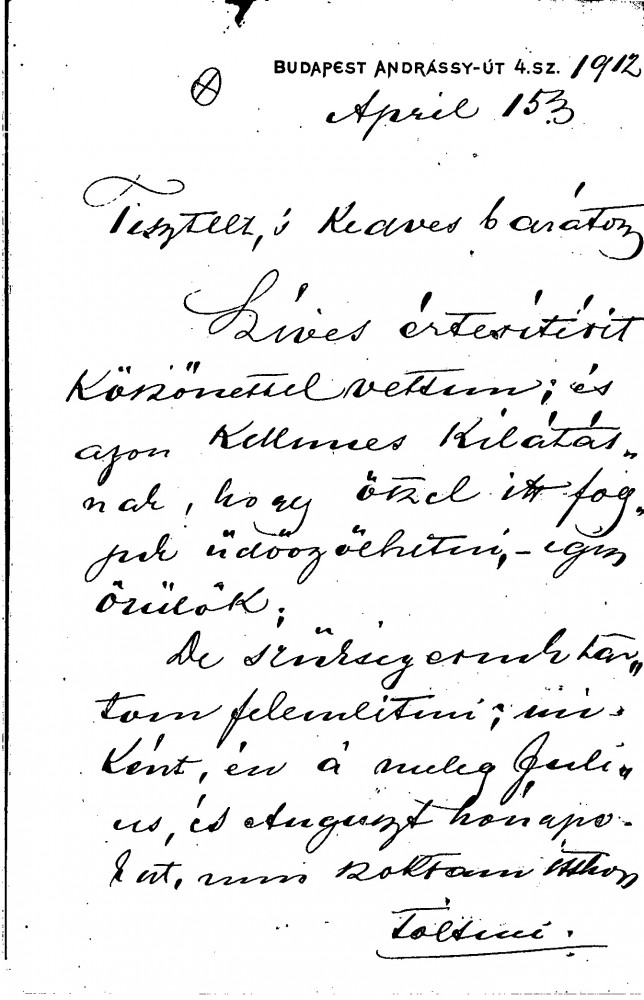 BUDAPEST ANDRÁSSY-ÚT 4.SZ. 1912
April 15
Tisztelt, s Kedves barátom
Szíves értesítésit
Köszönettel vettem; és
azon Kellemes Kilátás„
nak, hogy őket itt fog„
juk üdvözölhetni, – igen
örülök;
De szükségesnek tar„
tom felemlíteni; mi-
Ként, én á meleg Juli„
us, és Auguszt hónapo-
kat, nem szoktam itthon
Tölteni.